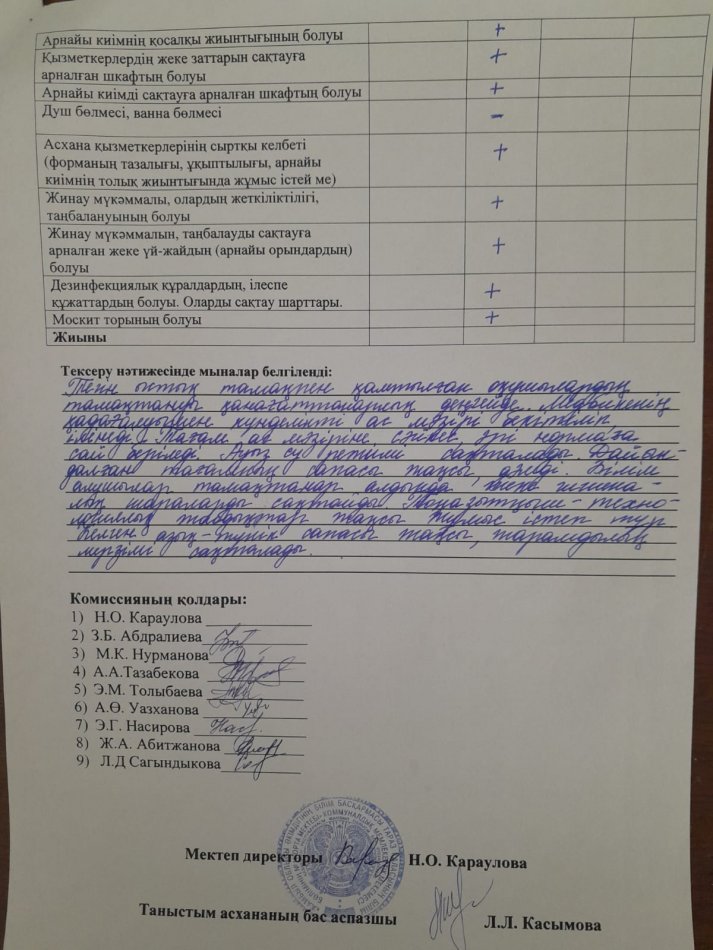 Арнайы киімнің қосалқы жиынтығының болуы +
Қызметкерлердің жеке заттарын сақтауға
арналған шкафтың болуы +
Арнайы киімді сақтауға арналған шкафтың болуы +
Душ бөлмесі, ванна бөлмесі -
Асхана қызметкерлерінің сыртқы келбеті
(форманың тазалығы, ұқыптылығы, арнайы
киімнің толық жиынтығында жұмыс істей ме) +
Жинау мүкәммалы, олардың жеткіліктілігі,
таңбалануының болуы +
Жинау мүкәммалын, таңбалауды сақтауға
арналған жеке үй-жайдың (арнайы орындардың)
болуы +
Дезинфекциялық құралдардың, ілеспе
құжаттардың болуы. Оларды сақтау шарттары. +
Москит торының болуы +
Жиыны
Тексеру нәтижесінде мыналар белгіленді:
Тегін ыстық тамақпен қамтылған оқушылардың
тамақтануы қанағаттанарлық деңгейде. Медбикенің
қадағалауымен күнделікті ас мәзірі бекітіліп
ілінеді. Тағам ас мәзіріне сәйкес, әрі нормаға
сай беріледі. Ауыз су режимі сақталады. Дайын-
далған тағамның сапасы жақсы, дәмді. Білім
алушылар тамақтанар алдында жеке гигиена-
лық шараларды сақтайды. Тоңазытқыш-техно-
логиялық жабдықтар жақсы жұмыс істеп тұр
Келген азық-түлік сапасы жақсы, жарамдылық
мерзімі сақталады.
Комиссияның қолдары:
1) Н.О. Караулова
2) З.Б. Абдралиева
3) М.К. Нурманова
4) А.А.Тазабекова
5) Э.М. Толыбаева
6) А.Ө. Уазханова
7) Э.Г. Насирова
8) Ж.А. Абитжанова
9) Л.Д Сагындыкова
Мектеп директоры Н.О. Караулова
Таныстым асхананың бас аспазшы Л.Л. Касымова